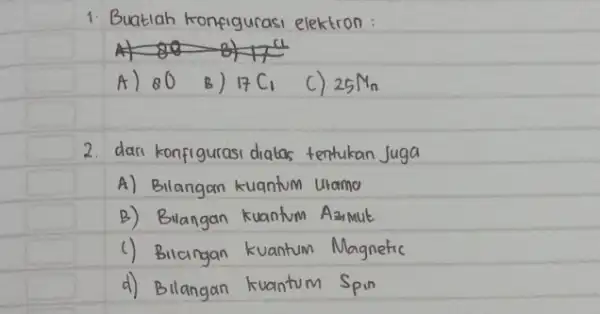 1. Buatlah konfigurasi elektron :
A) 8O B) 17 CL
A) 8O B) 17 Cl C) 25Mn
2. dari konfigurasi diatas tentukan juga
A) Bilangan kuantum Utama
B) Bilangan kuantum Azimut
C) Bilangan kuantum Magnetic
d) Bilangan kuantum Spin